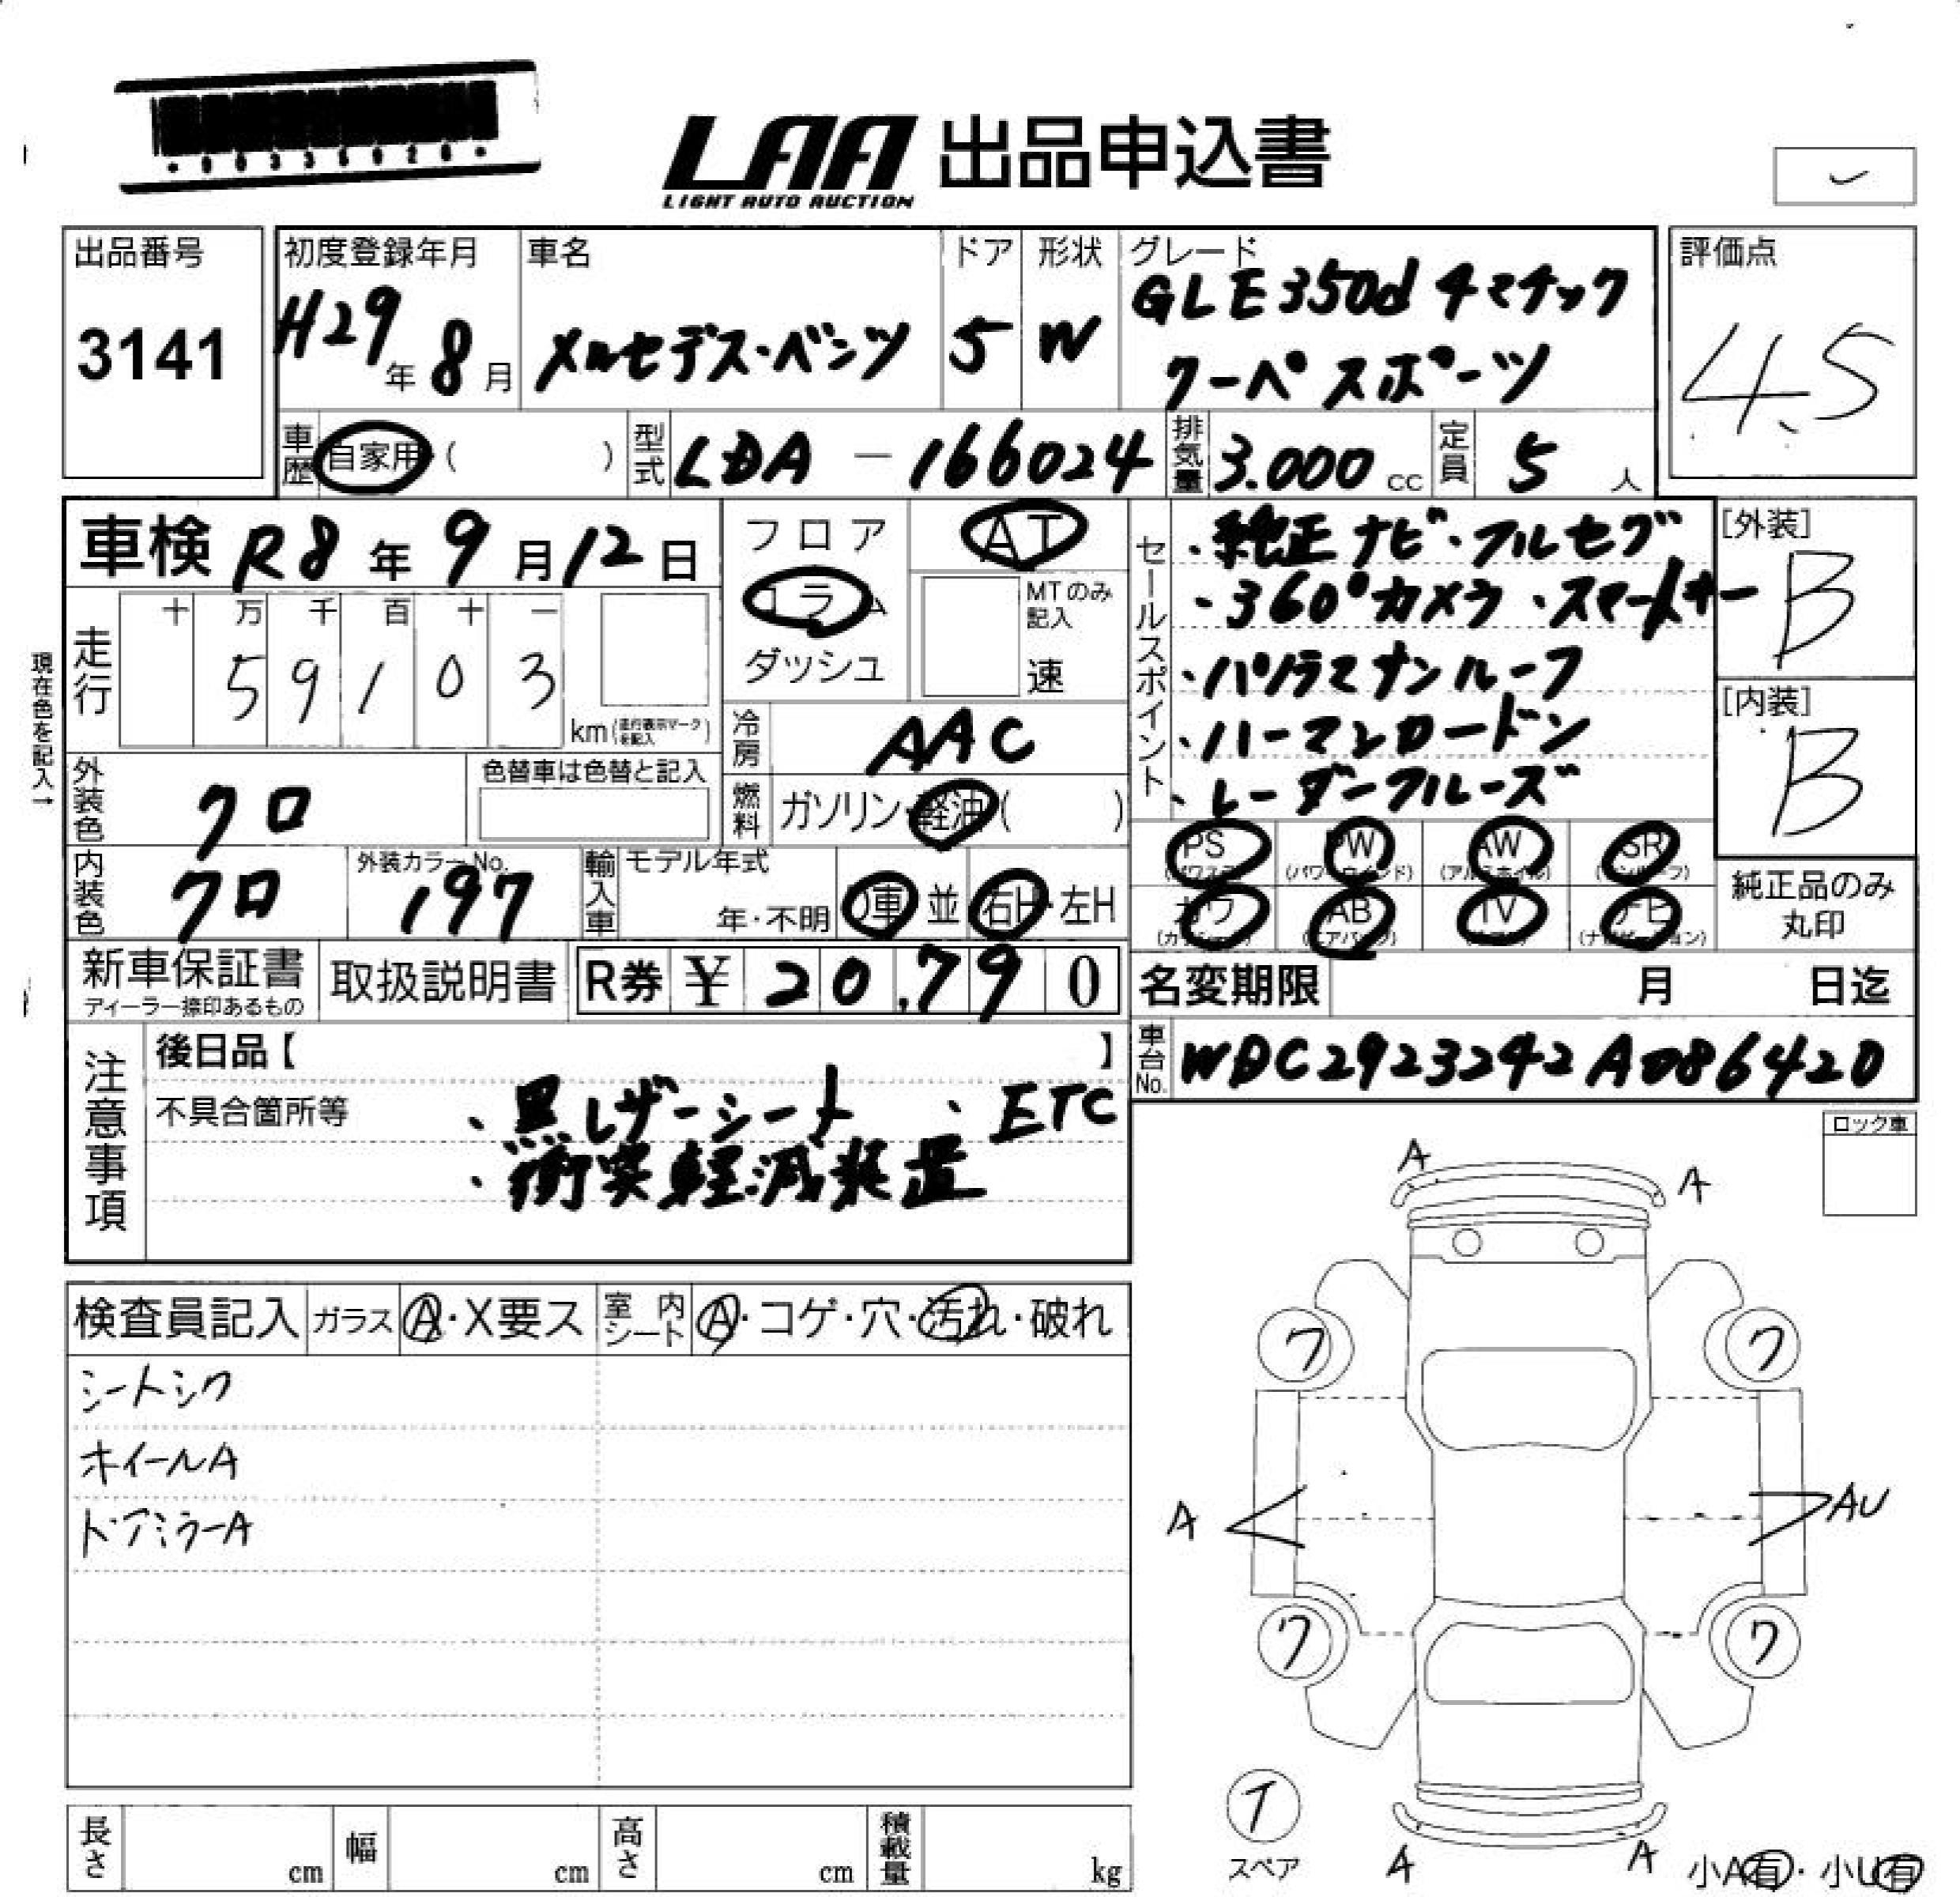 LAA 出品申込書
LIGHT AUTO AUCTION
出品番号
3141
初度登録年月
H29年8月
車名
メルセデス・ベンツ
ドア
5
形状
W
グレード
GLE350d 4マチック
クーペスポーツ
評価点
4.5
車歴 自家用 ( )
型式 LDA-166024
排気量 3.000 cc
定員 5 人
車検 R8年9月12日
走行
十 万 千 百 十 一
5 9 1 0 3
km (走行表示マークを記入)
現在色を記入→
フロア
コラム
ダッシュ
AT
MTのみ記入
速
冷房 AAC
燃料 ガソリン・軽油( )
セールスポイント
・純正ナビ・フルセグ
・360°カメラ・スマートキー
・パノラマサンルーフ
・ハーマンカードン
・レーダークルーズ
[外装]
B
[内装]
B
外装色 クロ
色替車は色替と記入
内装色 クロ
外装カラーNo.
197
輸入車
モデル年式
年・不明
D車 並 右H・左H
PS (パワステ)
PW (パワーウインド)
AW (アルミホイル)
SR (サンルーフ)
カワ (カワシート)
AB (エアバッグ)
TV (テレビ)
ナビ (ナビゲーション)
純正品のみ
丸印
新車保証書
ディーラー捺印あるもの
取扱説明書
R券 ¥ 20,790
名変期限 月 日迄
車台No. WDC2923242A086420
注意事項
後日品【 】
不具合箇所等
・黒レザーシート ・ETC
・衝突軽減装置
ロック車
検査員記入
ガラス A・X要ス
室内シート A・コゲ・穴・汚れ・破れ
シートシワ
ホイールA
ドアミラーA
A
A
ワ
ワ
A
AU
ワ
ワ
T
スペア
A
A
小A有・小U有
長さ cm
幅 cm
高さ cm
積載量 kg